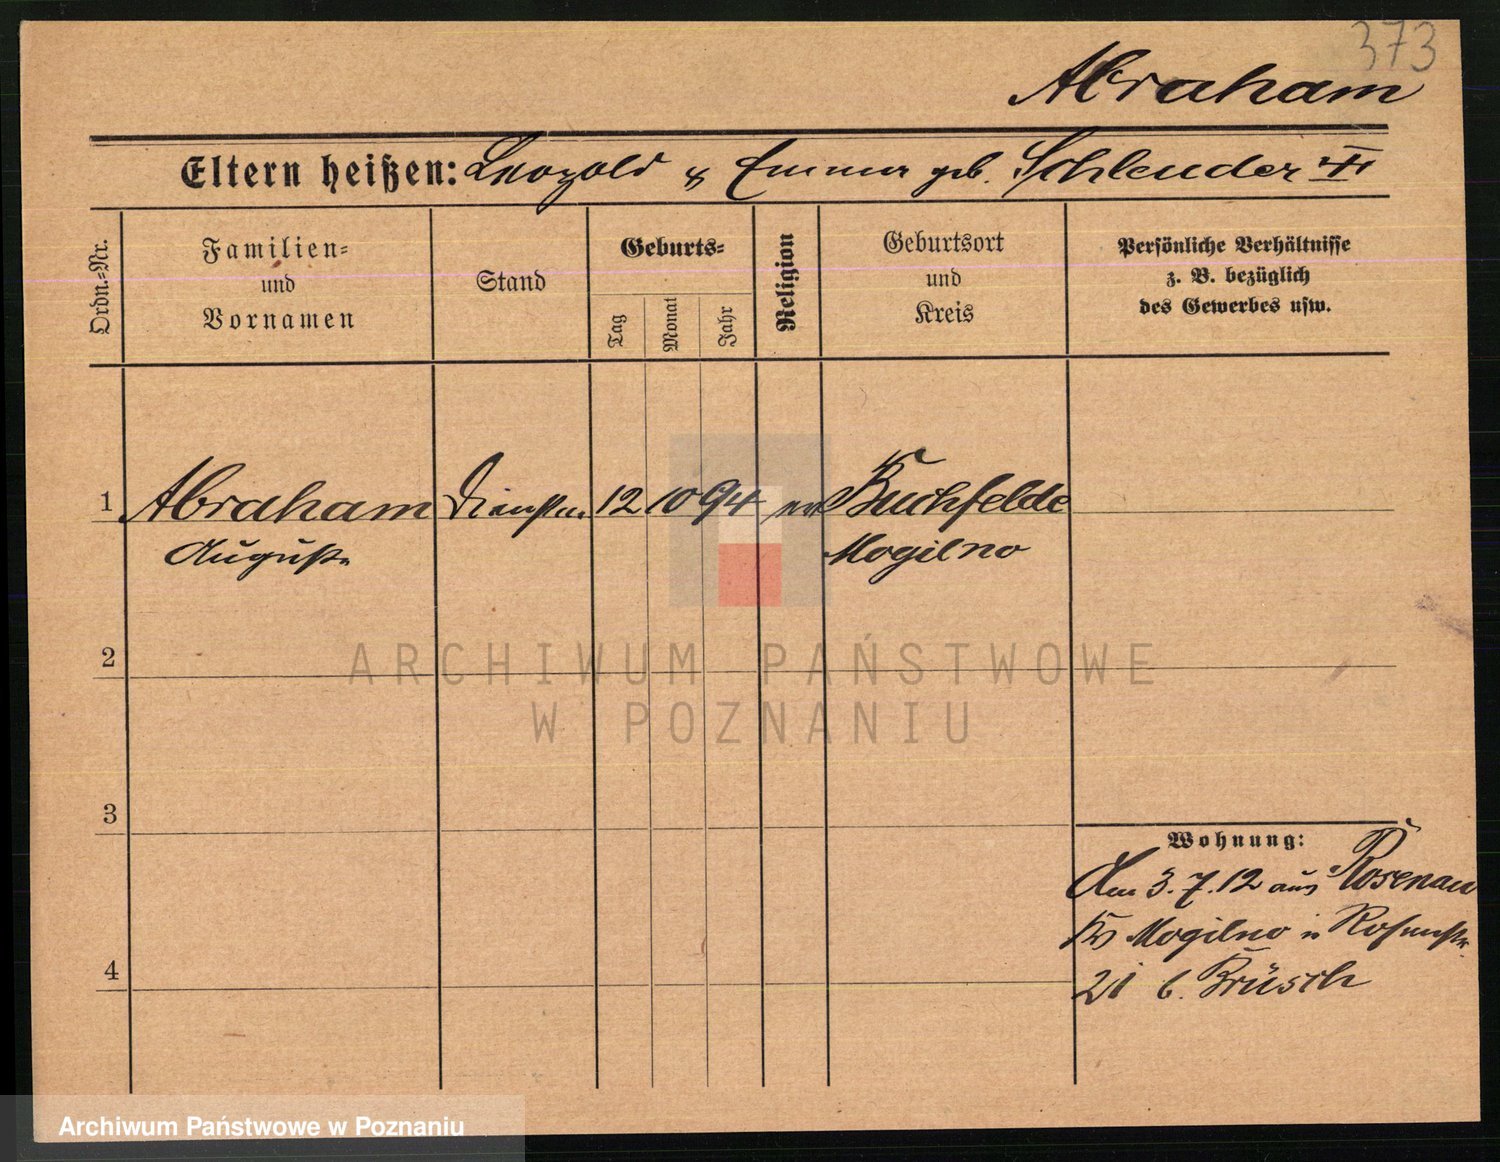 373
Abraham
Eltern heißen: Leopold & Emma geb. Schlender
Ordn.=Nr.
Familien=
und
Vornamen
Stand
Geburts=
Tag
Monat
Jahr
Religion
Geburtsort
und
Kreis
Persönliche Verhältnisse
z. B. bezüglich
des Gewerbes usw.
1 Abraham Dienstm. 12 10 94 ev Buchfelde
Auguste Mogilno
2
ARCHIWUM PAŃSTWOWE
W POZNANIU
3
Wohnung:
Am 3.7.12 aus Rosenau
Kr Mogilno in Rosenstr.
21 b. Brüsch
4
Archiwum Państwowe w Poznaniu